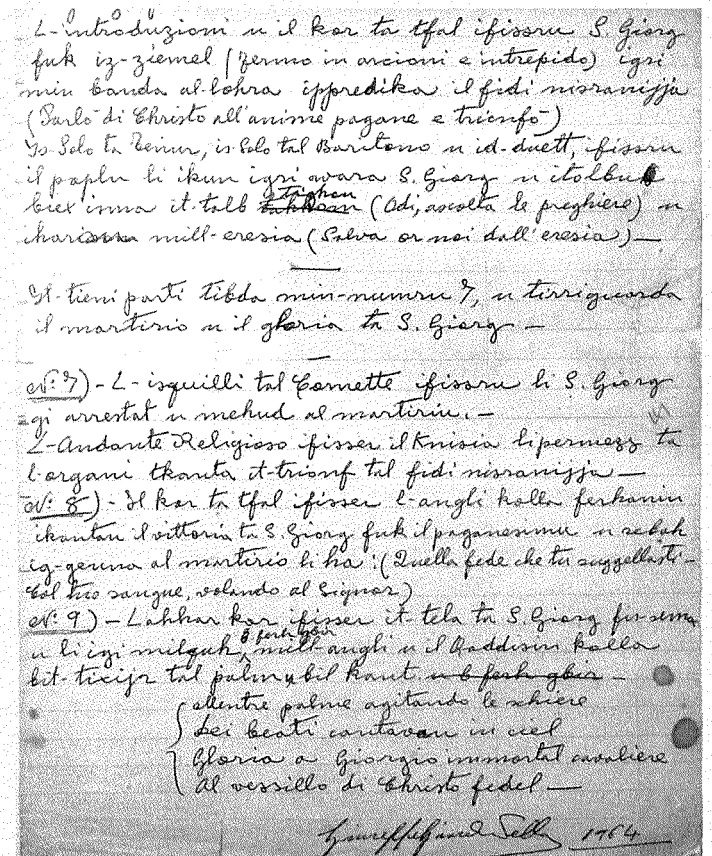 L-introduzioni u il kor ta tfal ifissru S. Giorg
fuk iz-ziemel (fermo in arcioni e intrepido) igri
min banda al-lohra ippredika il fidi nisranijja
(Parlò di Christo all'anime pagane e trionfò)
Is-Solo ta Tenur, is-Solo tal Baritono u id-duett, ifissru
il poplu li ikun igri wara S. Giorg u itolbu
biex isma it-talb taghhom (Odi, ascolta le preghiere) u
iharisom mill-eresia (Salva or noi dall'eresia) —
It-tieni parti tibda min-numru 7, u tirriguarda
il martirio u il gloria ta S. Giorg —
No. 7) - L-isquilli tal Cornette ifissru li S. Giorg
gi arrestat u mehud al martiriu. —
L-Andante Religioso ifisser il Knisia li permezz ta
l-organi tkanta it-trionf tal fidi nisranijja —
No. 8) - Il kor ta tfal ifisser l-angli kolla ferhanin
ikantau il vittoria ta S. Giorg fuk il paganesimu u sebah
ig-genna al martirio li ha: (Quella fede che tu suggellasti -
Col tuo sangue, volando al Signor)
No. 9) - L-ahhar kor ifisser it-tela ta S. Giorg fis-sema
u li igi milquh, b'ferh gbir mill-angli u il Qaddisin kolla
bit-ticijr tal palm u bil kant u b ferh gbir —
Mentre palme agitando le schiere
Dei beati cantavan in ciel
Gloria a Giorgio immortal cavaliere
Al vessillo di Christo fedel —
1964